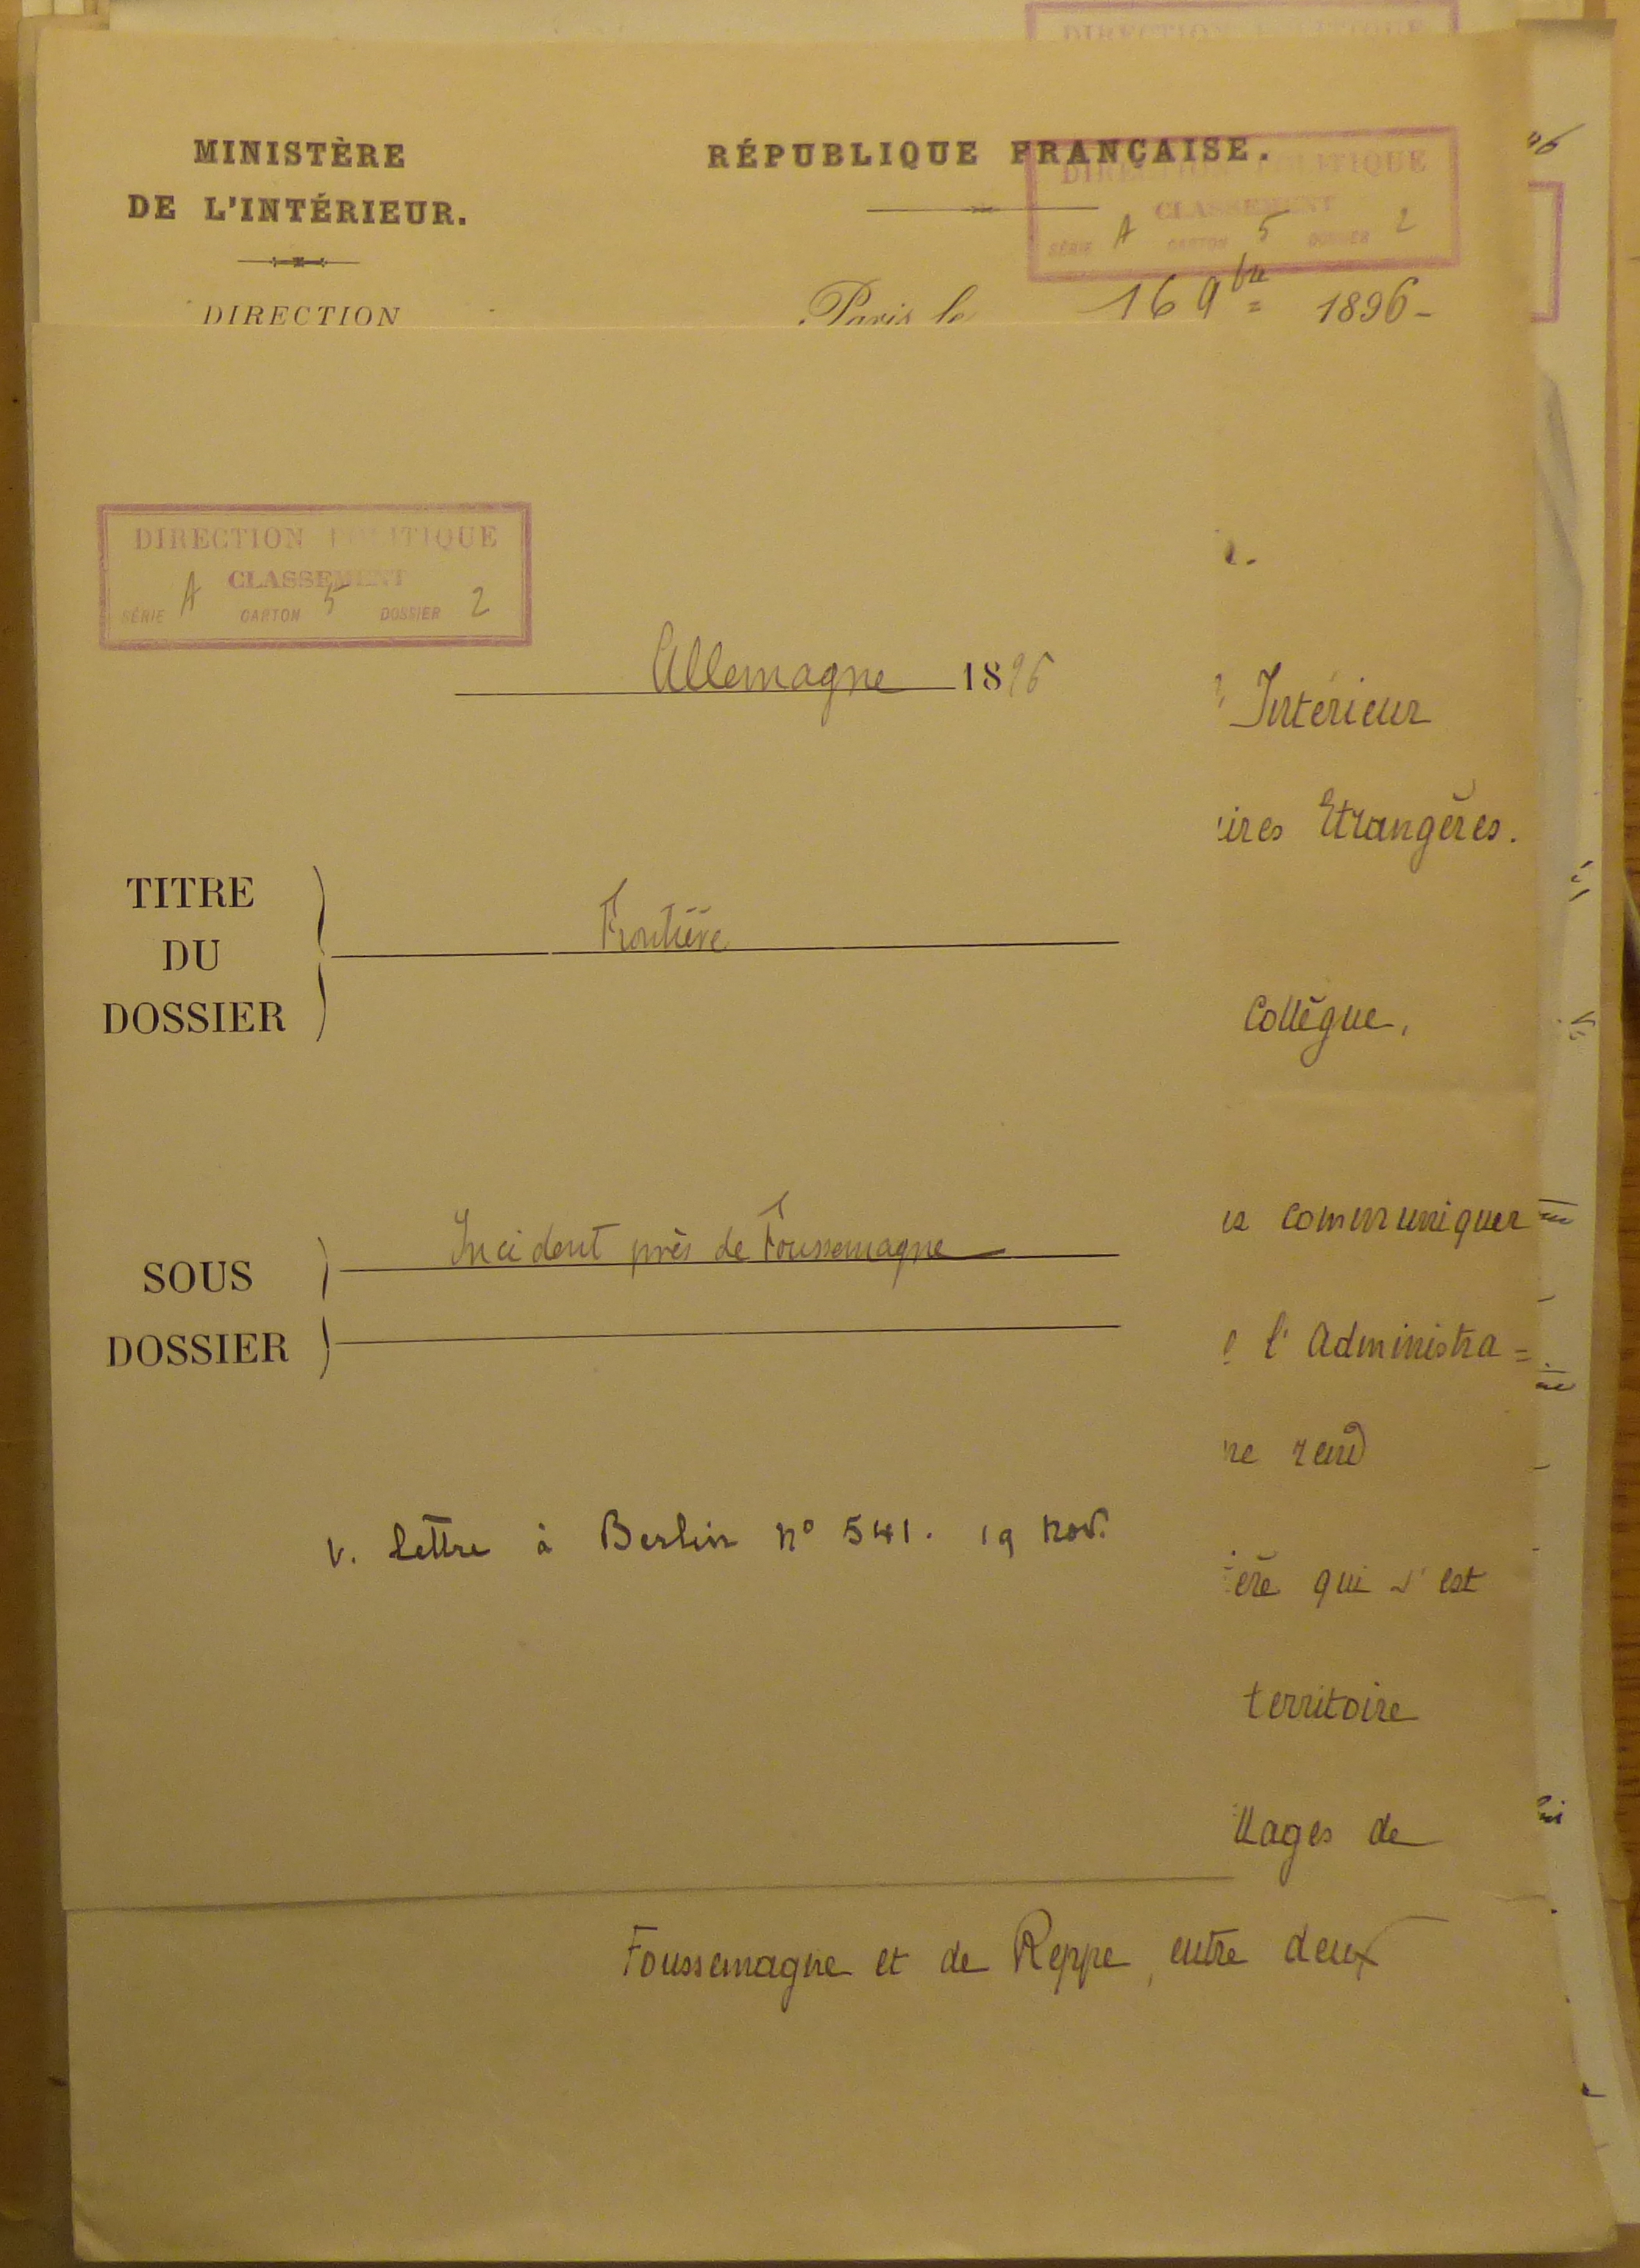 DIRECTION POLITIQUE
MINISTÈRE
DE L'INTÉRIEUR.
RÉPUBLIQUE FRANÇAISE.
DIRECTION POLITIQUE
CLASSEMENT
SÉRIE A CARTON 5 DOSSIER 2
DIRECTION
Paris le 16 9bre 1896-
DIRECTION POLITIQUE
CLASSEMENT
SÉRIE A CARTON 5 DOSSIER 2
Allemagne 1896
Intérieur
ires Etrangères.
TITRE
DU
DOSSIER
Frontière
Collègue,
SOUS
DOSSIER
Incident près de Foussemagne
communiquer
l'Administra=
ne rend
V. lettre à Berlin n° 541. 19 nov.
ère qui s'est
territoire
llages de
Foussemagne et de Reppe, entre deux